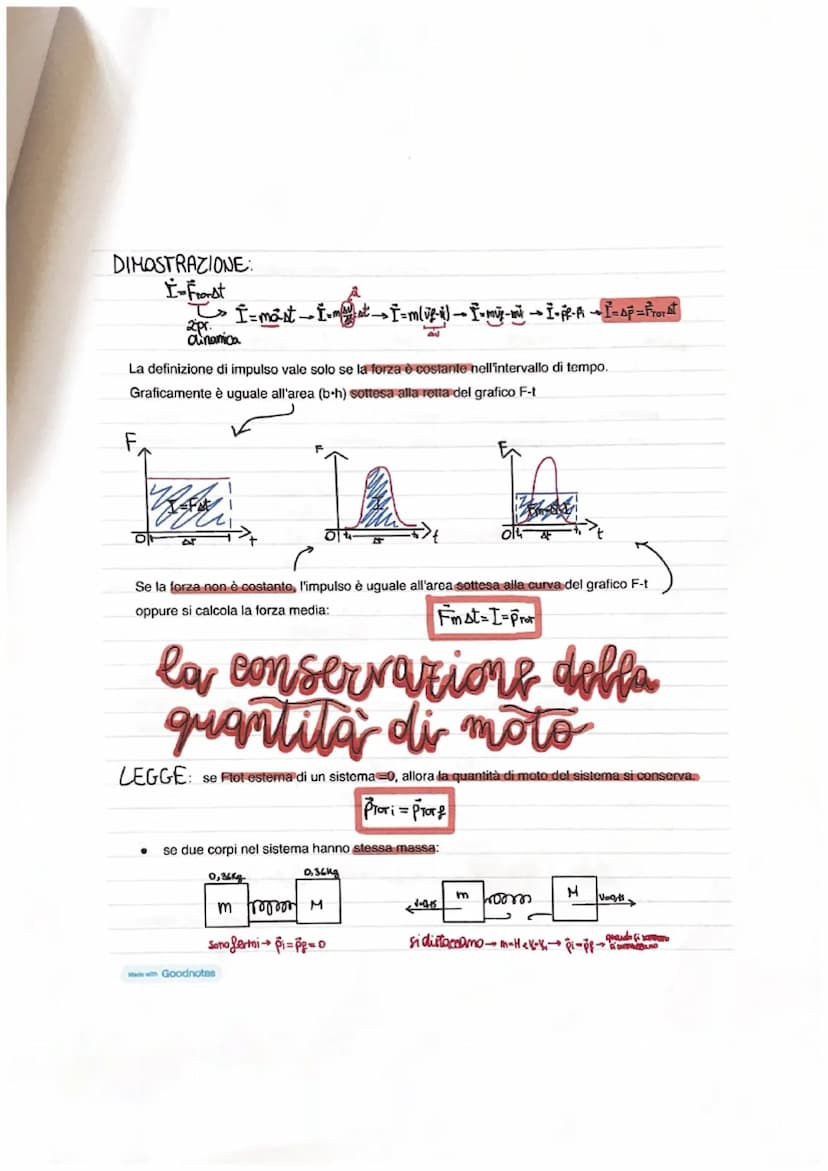 DIMOSTRAZIONE:
I⃗=F⃗TOTΔt
2°pr. dinamica
I⃗=ma⃗Δt → I⃗=m Δv⃗/Δt Δt → I⃗=m(v⃗f-v⃗i) → I⃗=mv⃗f-mv⃗i → I⃗=p⃗f-p⃗i → I⃗=Δp⃗=F⃗TOTΔt
a⃗
Δv
La definizione di impulso vale solo se la forza è costante nell'intervallo di tempo.
Graficamente è uguale all'area (b•h) sottesa alla retta del grafico F-t
F
I=FΔt
O t₁ Δt t
F
I
O t₁ Δt t₂ t
F
O t₁ Δt t₂ t
Se la forza non è costante, l'impulso è uguale all'area sottesa alla curva del grafico F-t
oppure si calcola la forza media:
F⃗m Δt=I⃗=p⃗TOT
la conservazione della
quantità di moto
LEGGE: se Ftot esterna di un sistema =0, allora la quantità di moto del sistema si conserva.
p⃗TOT i = p⃗TOT f
• se due corpi nel sistema hanno stessa massa:
0,36Kg 0,36Kg
m M
m M
sono fermi → p⃗i = p⃗f = 0
si distaccano → m=M → p⃗i=p⃗f →
Made with Goodnotes